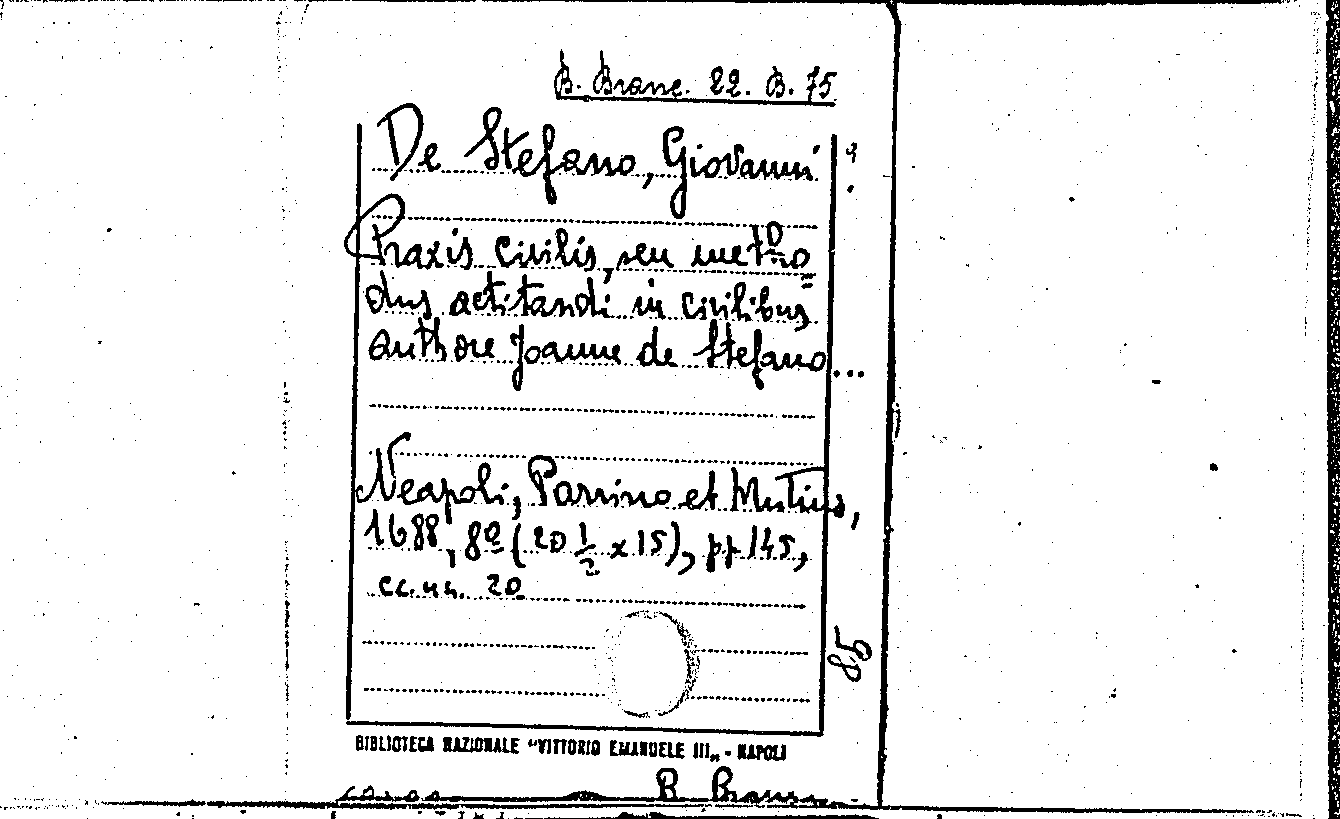 B. Branc. 22. B. 75
De Stefano, Giovanni
Praxis civilis, seu metho=
dus actitandi in civilibus
authore Joanne de Stefano...
Neapoli, Parrino et Mutius,
1688, 8º (20 1/2 x 15), pp 145,
cc. nn. 20
85
BIBLIOTECA NAZIONALE "VITTORIO EMANUELE III„ - NAPOLI